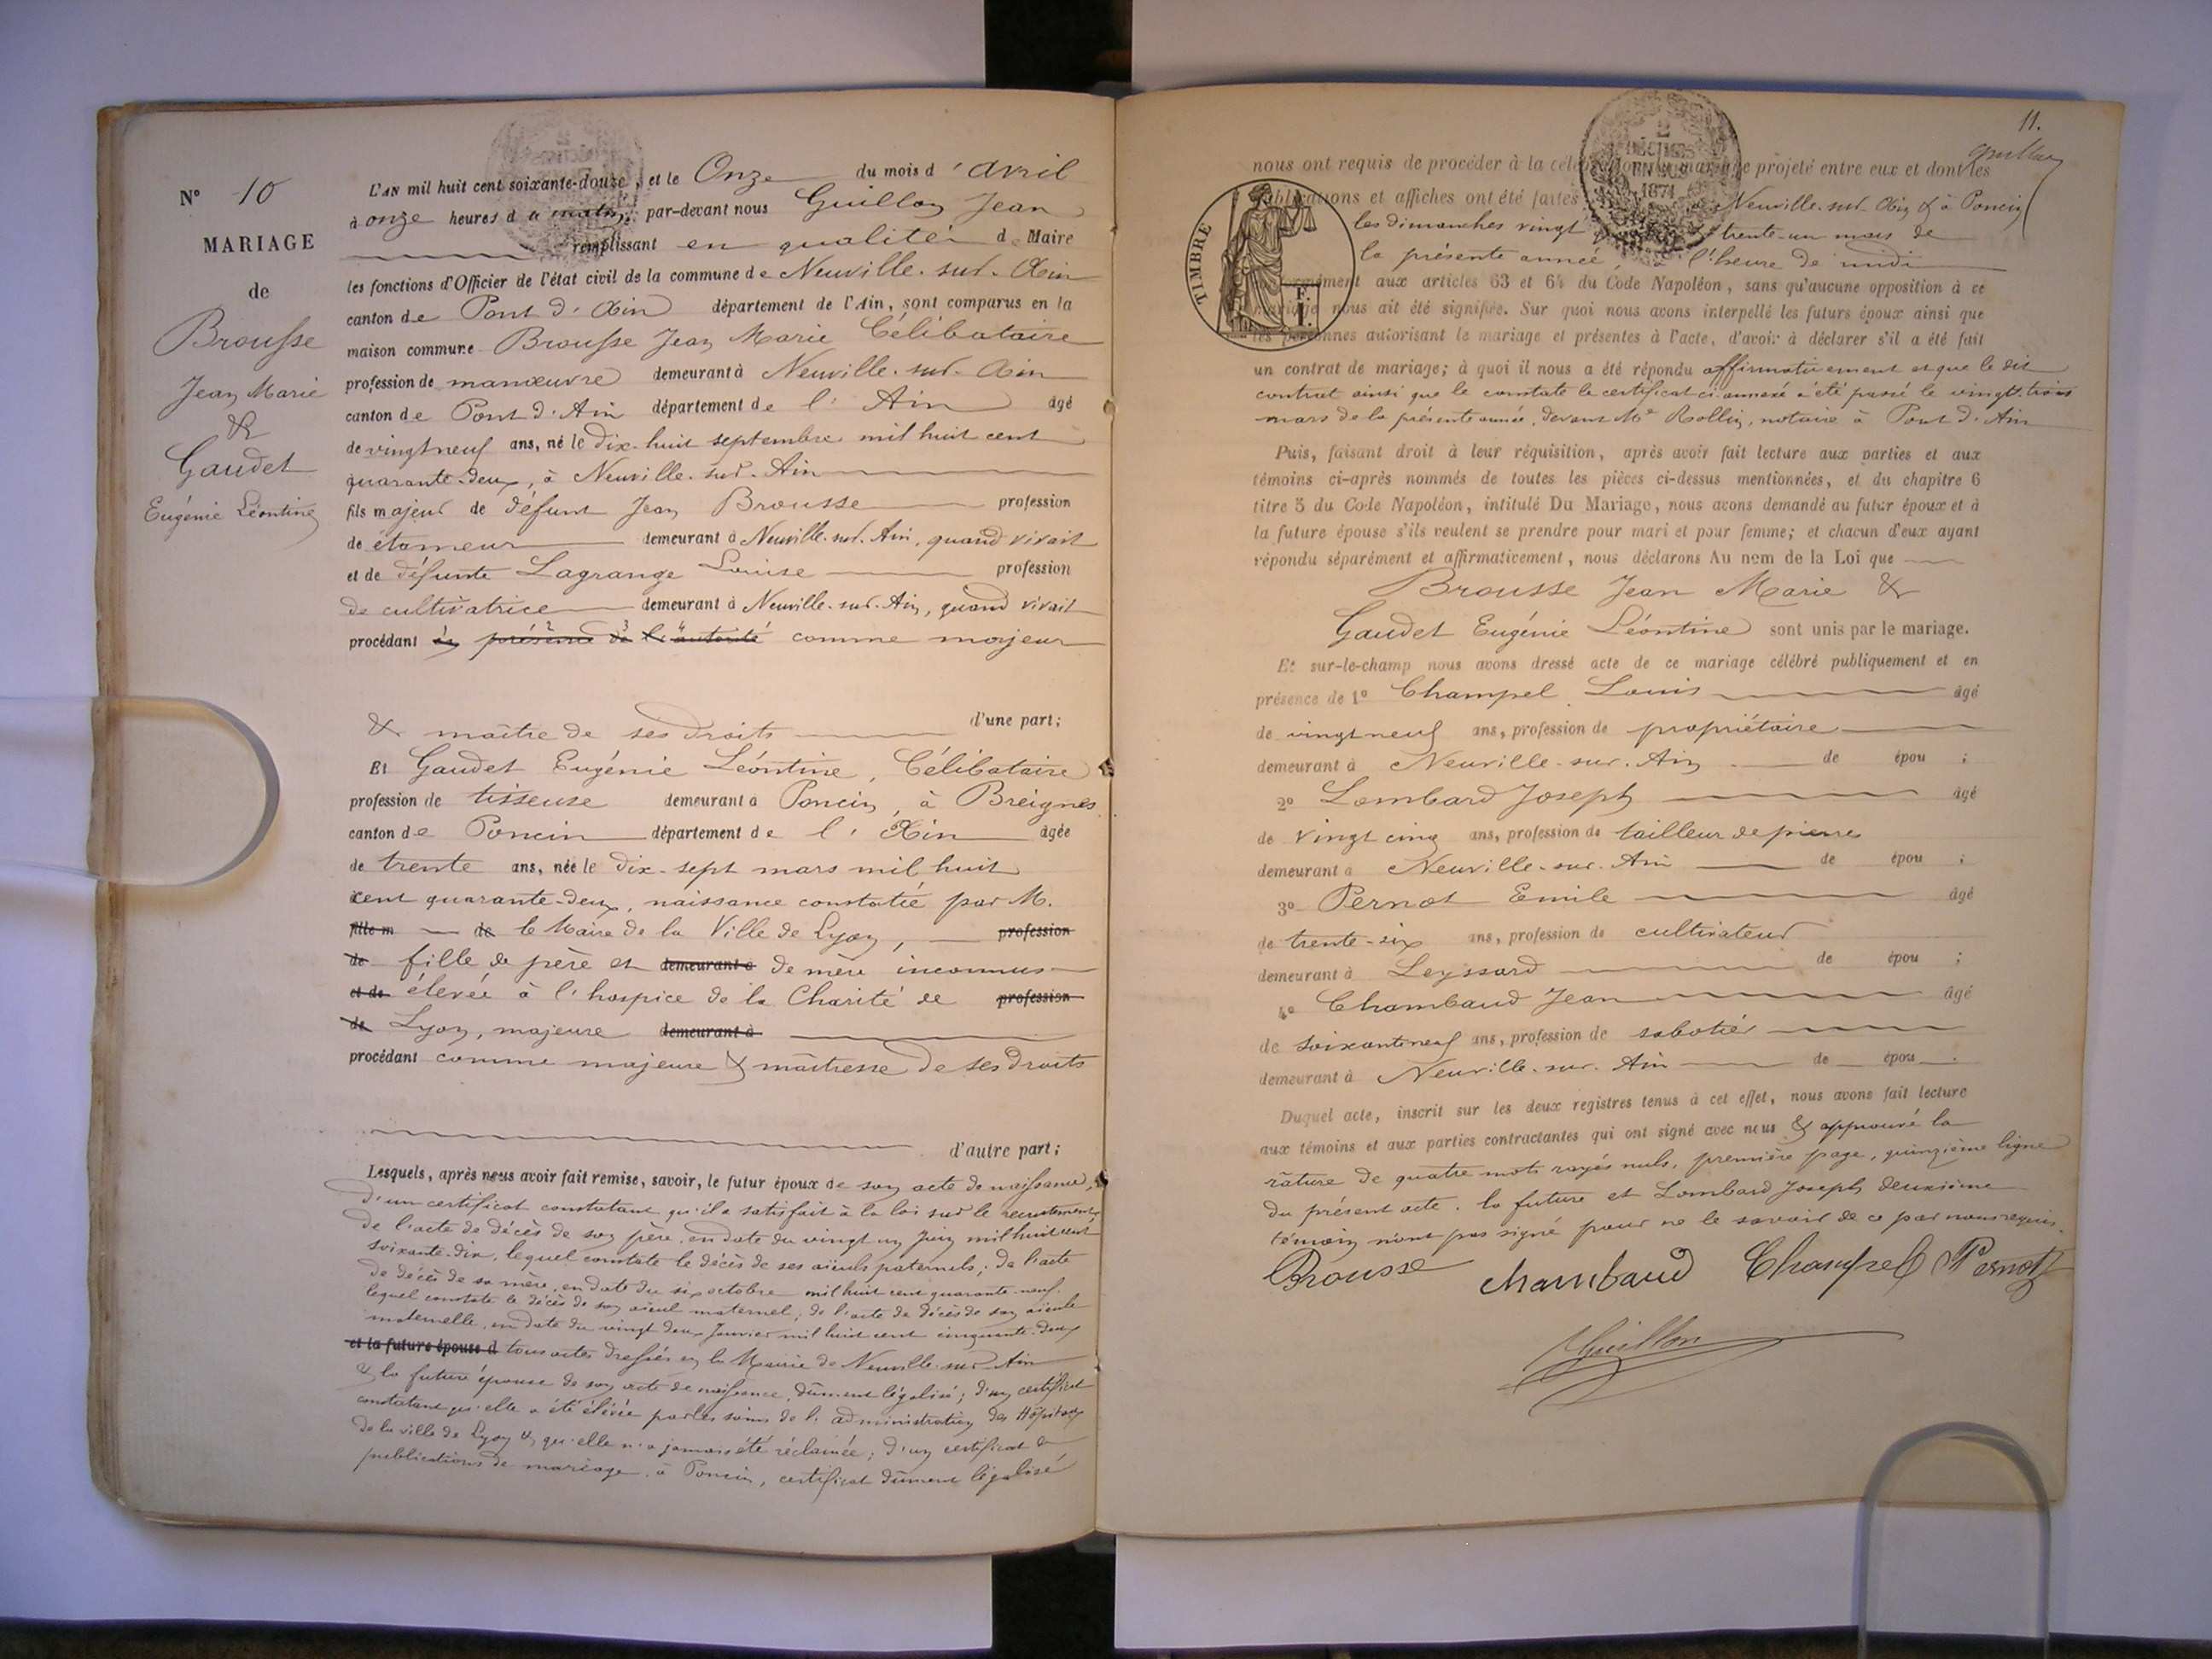 N° 10
MARIAGE
de
Brousse
Jean Marie
&
Gaudet
Eugénie Léontine
L'AN mil huit cent soixante-douze, et le Onze du mois d'avril
à onze heures du matin, par-devant nous Guillon Jean
remplissant en qualité de Maire
les fonctions d'Officier de l'état civil de la commune de Neuville-sur-Ain
canton de Pont d'Ain département de l'Ain, sont comparus en la
maison commune Brousse Jean Marie Célibataire
profession de manœuvre demeurant à Neuville-sur-Ain
canton de Pont d'Ain département de l'Ain âgé
de vingt neuf ans, né le dix-huit septembre mil huit cent
quarante-deux, à Neuville-sur-Ain
fils majeur de défunt Jean Brousse profession
de étameur demeurant à Neuville-sur-Ain, quand vivait
et de défunte Lagrange Louise profession
de cultivatrice demeurant à Neuville-sur-Ain, quand vivait
procédant en présence de l'autorité comme majeur
& maître de ses droits d'une part;
Et Gaudet Eugénie Léontine, Célibataire
profession de tisseuse demeurant à Poncin, à Breignes
canton de Poncin département de l'Ain âgée
de trente ans, née le dix-sept mars mil huit
cent quarante-deux, naissance constatée par M.
fille m de le Maire de la Ville de Lyon, profession
de fille de père et demeurant à de mère inconnus
et de élevée à l'hospice de la Charité de profession
de Lyon, majeure demeurant à
procédant comme majeure & maîtresse de ses droits
d'autre part;
Lesquels, après nous avoir fait remise, savoir, le futur époux de son acte de naissance,
d'un certificat constatant qu'il a satisfait à la loi sur le recrutement,
de l'acte de décès de son père, en date du vingt un Juin mil huit cent
soixante-dix, lequel constate le décès de ses aïeuls paternels; de l'acte
de décès de sa mère, en date du six octobre mil huit cent quarante-neuf,
lequel constate le décès de son aïeul maternel; de l'acte de décès de son aïeule
maternelle, en date du vingt deux Janvier mil huit cent cinquante-deux
et la future épouse d tous actes dressés en la Mairie de Neuville-sur-Ain
& la future épouse de son acte de naissance, dûment légalisé; d'un certificat
constatant qu'elle a été élevée par les soins de l'administration des Hôpitaux
de la ville de Lyon & qu'elle n'a jamais été réclamée; d'un certificat de
publications de mariage, à Poncin, certificat dûment légalisé
11.
Guillon
nous ont requis de procéder à la célébration du mariage projeté entre eux et dont les
publications et affiches ont été faites à Neuville-sur-Ain & à Poncin
les dimanches vingt trente-un mars de
la présente année, à l'heure de midi
conformément aux articles 63 et 64 du Code Napoléon, sans qu'aucune opposition à ce
mariage nous ait été signifiée. Sur quoi nous avons interpellé les futurs époux ainsi que
les personnes autorisant le mariage et présentes à l'acte, d'avoir à déclarer s'il a été fait
un contrat de mariage; à quoi il nous a été répondu affirmativement et que le dit
contrat ainsi que le constate le certificat ci-annexé a été passé le vingt-trois
mars de la présente année, devant Me Rollin, notaire à Pont d'Ain
TIMBRE
2 DÉCIMES EN SUS 1871
F. I.
Puis, faisant droit à leur réquisition, après avoir fait lecture aux parties et aux
témoins ci-après nommés de toutes les pièces ci-dessus mentionnées, et du chapitre 6
titre 5 du Code Napoléon, intitulé Du Mariage, nous avons demandé au futur époux et à
la future épouse s'ils veulent se prendre pour mari et pour femme; et chacun d'eux ayant
répondu séparément et affirmativement, nous déclarons Au nom de la Loi que
Brousse Jean Marie &
Gaudet Eugénie Léontine sont unis par le mariage.
Et sur-le-champ nous avons dressé acte de ce mariage célébré publiquement et en
présence de 1° Champel Louis âgé
de vingt neuf ans, profession de propriétaire
demeurant à Neuville-sur-Ain de épou ;
2° Lombard Joseph âgé
de vingt cinq ans, profession de tailleur de pierres
demeurant à Neuville-sur-Ain de épou ;
3° Pernot Emile âgé
de trente-six ans, profession de cultivateur
demeurant à Leyssard de épou ;
4° Chambaud Jean âgé
de soixante neuf ans, profession de sabotier
demeurant à Neuville-sur-Ain de épou .
Duquel acte, inscrit sur les deux registres tenus à cet effet, nous avons fait lecture
aux témoins et aux parties contractantes qui ont signé avec nous & approuvé la
rature de quatre mots rayés nuls, première page, quinzième ligne
du présent acte. la future et Lombard Joseph deuxième
témoin n'ont pas signé pour ne le savoir de ce par nous requis.
Brousse Chambaud Champel Pernot
Guillon